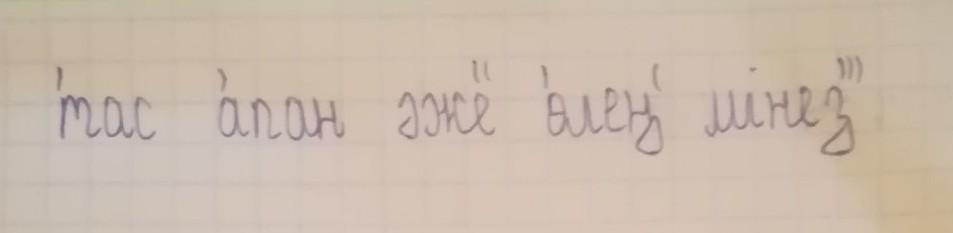 'тас 'апан әже'' 'өлең' мінез'''